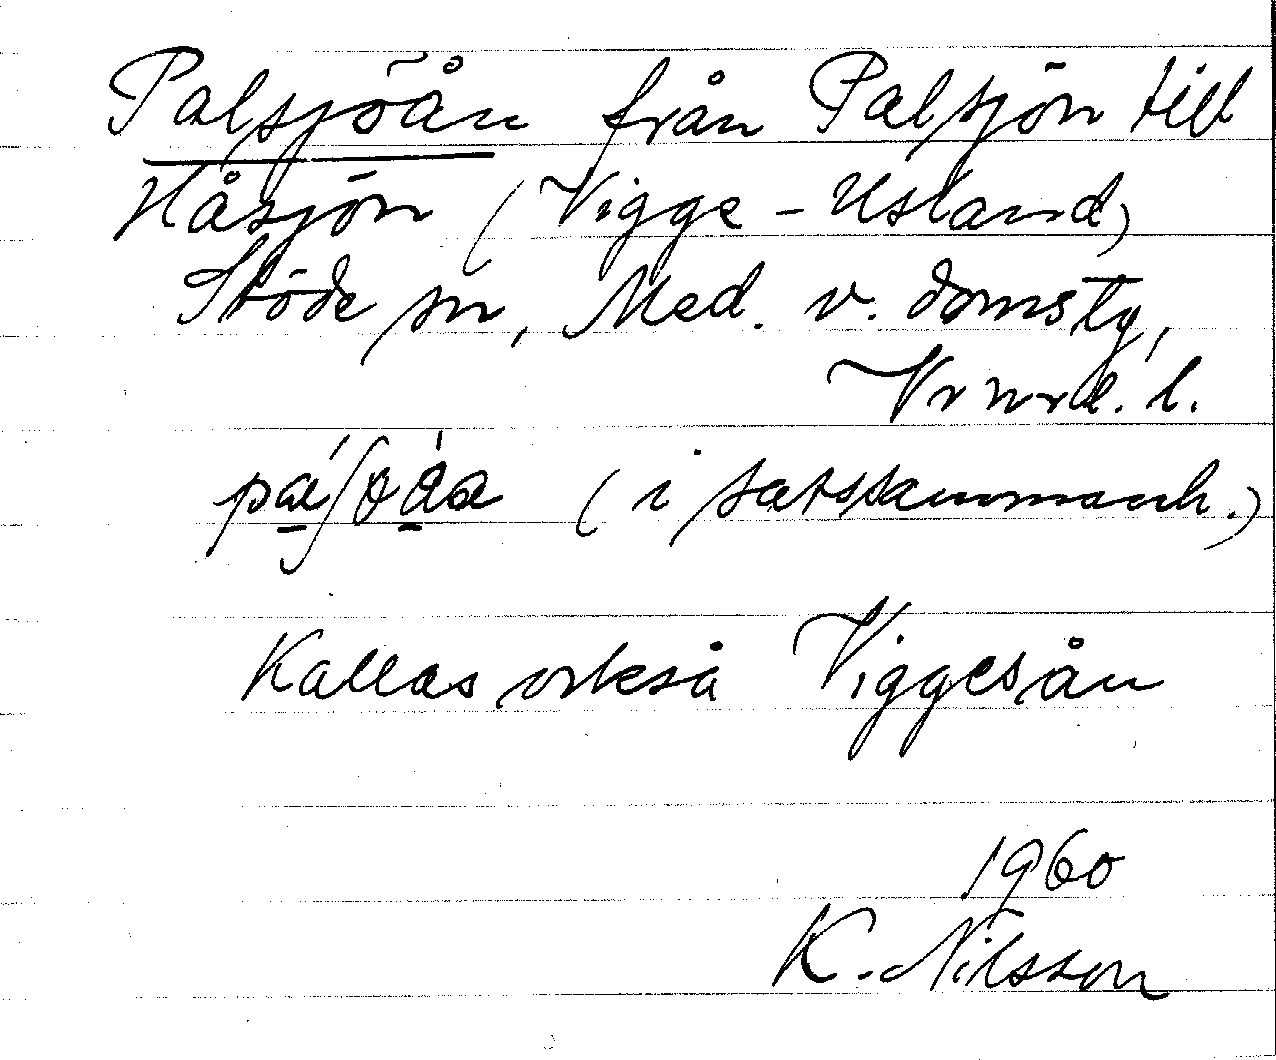 Palsjöån från Palsjön till
Håsjön (Vigge - Usland)
Stöde sn, Med. v. domstg,
Vrnrd. l.
(i satssammanh.)
Kallas också Viggesån
1960
K. Nilsson